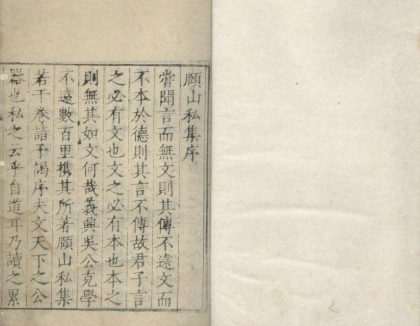 頋山私集序
嘗聞言而無文則其傳不遠文而
不本於德則其言不傳故君子言
之必有文也文之必有本也本之
則無其如文何哉義興吳公克學
不遠數百里携其所著頋山私集
若干卷請予謁序夫文天下之公
器也私之云乎自道耳乃讀之累